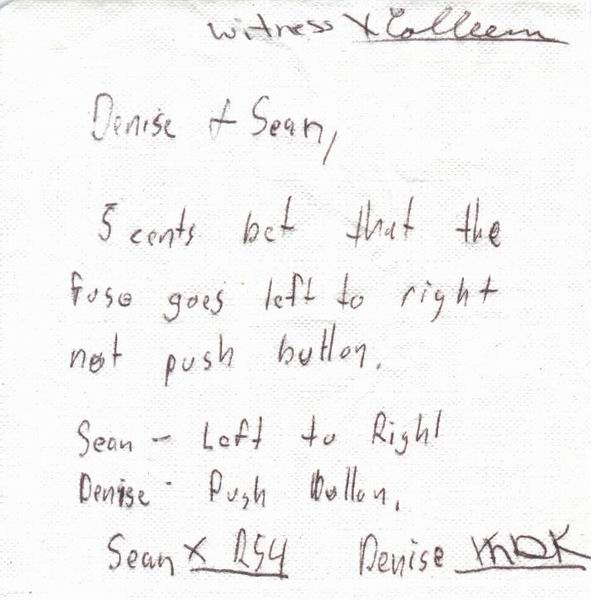 witness X Colleen
Denise + Sean,
5 cents bet that the
fuse goes left to right
not push button.
Sean - Left to Right
Denise - Push Button.
Sean X Denise